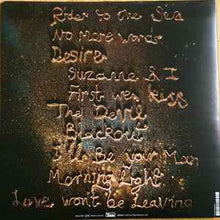 Rider to the Sea
No More Words
Desire
Suzanne & I
First we kiss
The Devil
Blackout
I'll Be Your Man
Morning Light
Love won't be Leaving